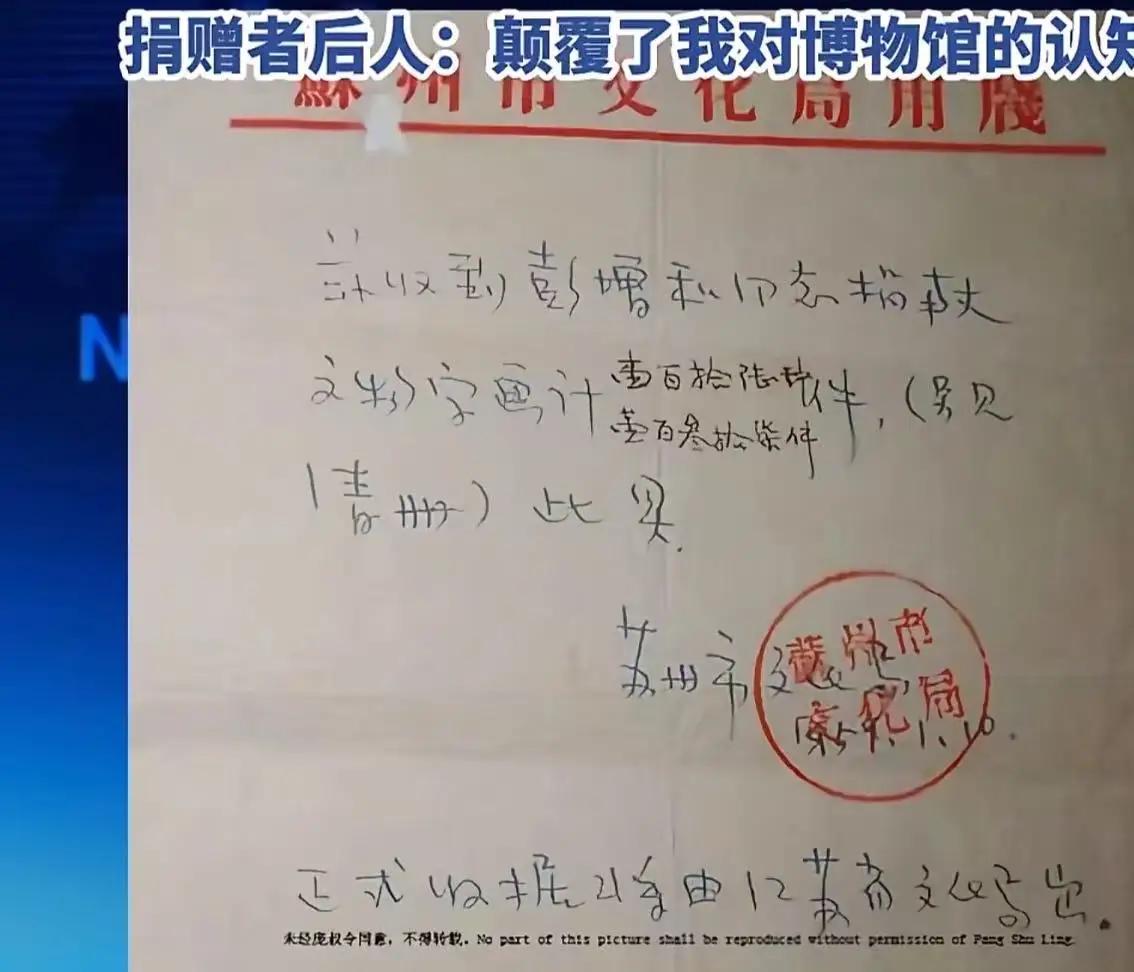 捐赠者后人：颠覆了我对博物馆的认知
蘇州市文化局用牋
N
兹收到彭增和同志捐献
文物字画计壹百拾陆件
壹百叁拾柒件，（另见
清册）此具.
苏州市文化局
蘇州市
文化局
1959.1.10.
正式收据将由江苏省文化局出。
未经庞叔令同意，不得转载。No part of this picture shall be reproduced without permission of Pang Shu Ling.